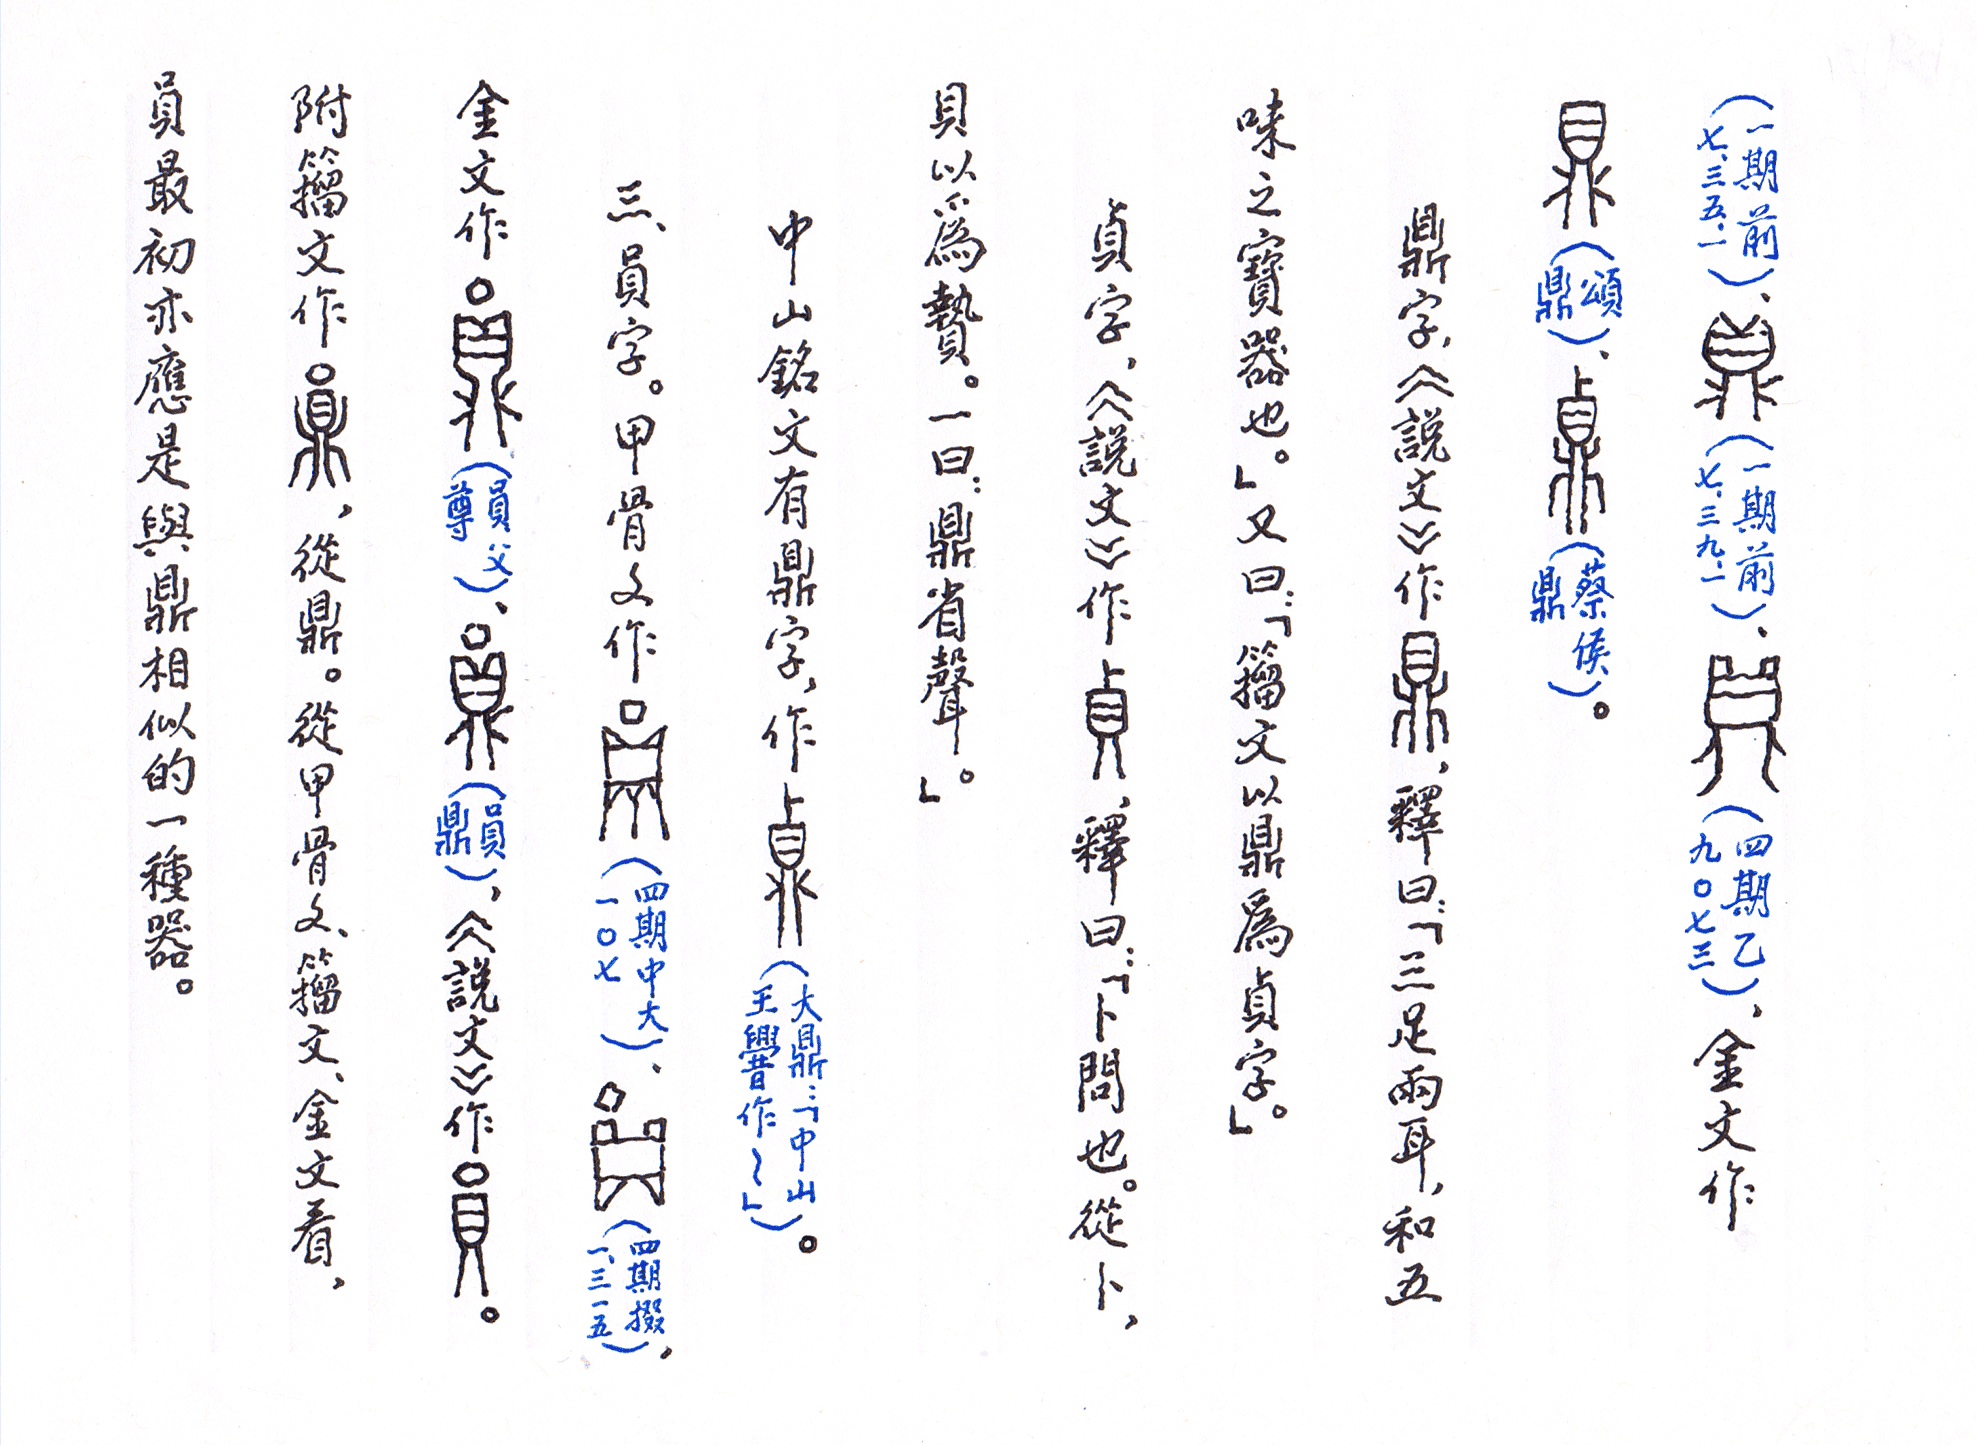 （一期前七.三五.一）、（一期前七.三九.一）、（四期乙九〇七三），金文作
（頌鼎）、（蔡侯鼎）。
鼎字，《説文》作，釋曰：「三足兩耳，和五
味之寶器也。」又曰：「籀文以鼎爲貞字。」
貞字，《説文》作，釋曰：「卜問也。從卜，
貝以爲贄。一曰：鼎省聲。」
中山銘文有鼎字，作（大鼎：「中山王嚳作～」）。
三、員字。甲骨文作（四期中大一〇七）、（四期掇一.三一五），
金文作（員父尊）、（員鼎），《説文》作。
附籀文作，從鼎。從甲骨文、籀文、金文看，
員最初亦應是與鼎相似的一種器。